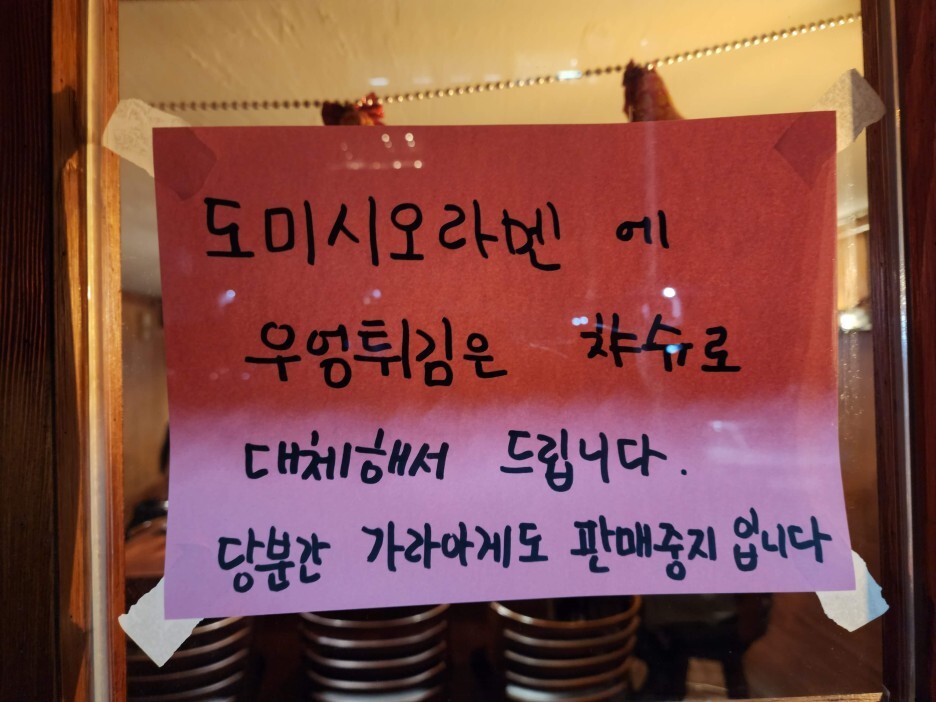 도미시오라멘 에
우엉튀김은 챠슈로
대체해서 드립니다.
당분간 가라아게도 판매중지입니다